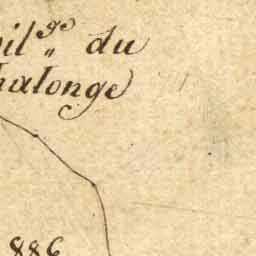 vil.ge du
halonge
886